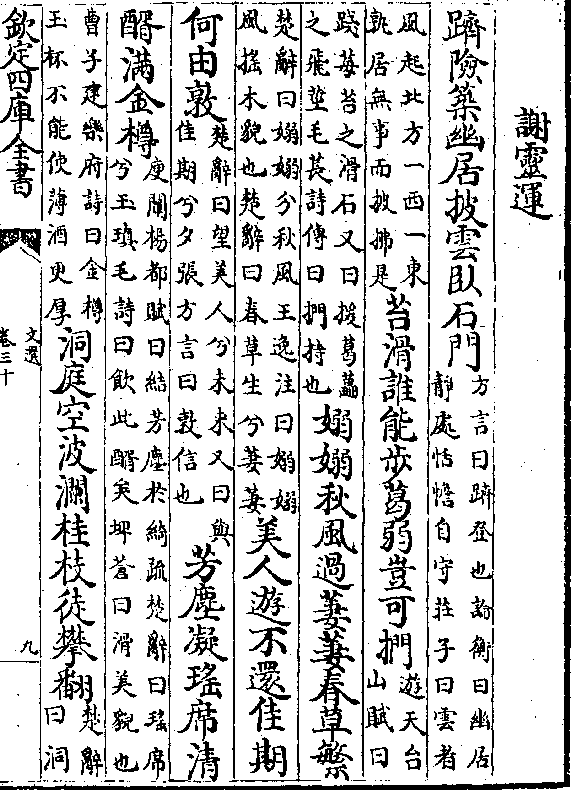 謝靈運
躋險築幽居披雲臥石門
方言曰躋登也論衡曰幽居
靜處恬憺自守莊子曰雲者
風起北方一西一東
孰居無事而披拂是
苔滑誰能步葛弱豈可捫
遊天台
山賦曰
踐莓苔之滑石又曰援葛藟
之飛莖毛萇詩傳曰捫持也
嫋嫋秋風過萋萋春草繁
楚辭曰嫋嫋兮秋風王逸注曰嫋嫋
風搖木貌也楚辭曰春草生兮萋萋
美人遊不還佳期
何由敦
楚辭曰望美人兮未来又曰與
佳期兮夕張方言曰敦信也
芳塵凝瑤席清
醑滿金樽
庾闡楊都賦曰結芳塵於綺疏楚辭曰瑤席
兮玉瑱毛詩曰飲此醑矣埤蒼曰滑美貌也
曹子建樂府詩曰金樽
玉杯不能使薄酒更厚
洞庭空波瀾桂枝徒攀翻
楚辭
曰洞
欽定四庫全書
文選
卷三十
九